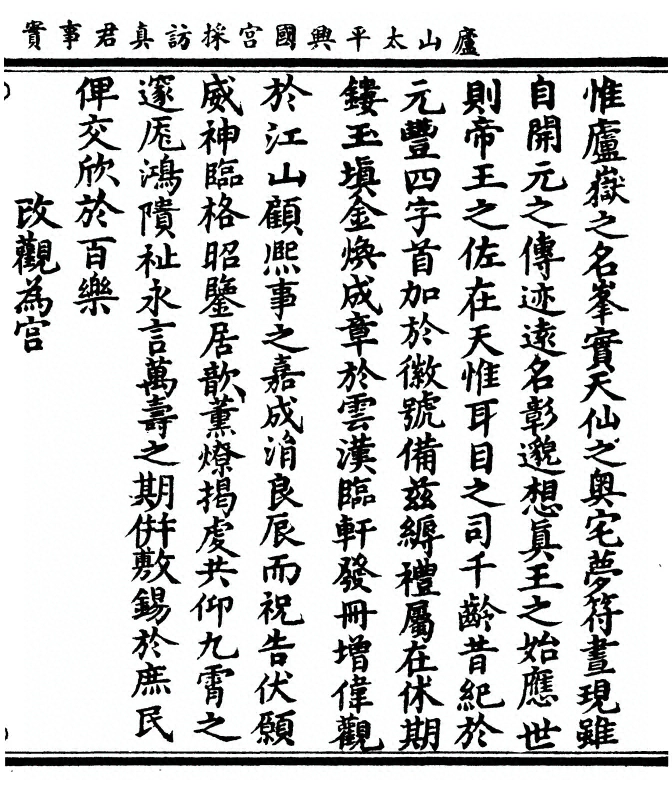 廬山太平興國宮採訪真君事實
惟廬嶽之名峯實天仙之奥宅夢符晝現雖
自開元之傳迹遠名彰邈想真王之始應世
則帝王之佐在天惟耳目之司千齡昔紀於
元豐四字首加於徽號備兹縟禮屬在休期
鏤玉塡金煥成章於雲漢臨軒發冊增偉觀
於江山顧熙事之嘉成涓良辰而祝告伏願
威神臨格昭鑒居歆薰燎揭虔共仰九霄之
邃厖鴻隤祉永言萬壽之期併敷錫於庶民
俾交欣於百樂
改觀為宮